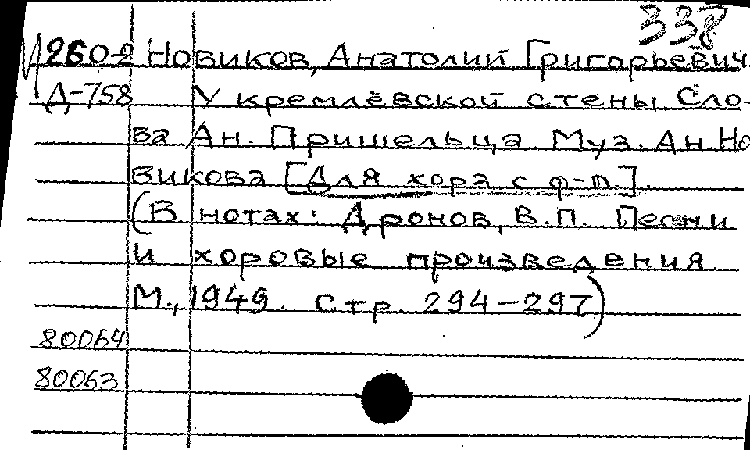 338
М260-2 Новиков, Анатолий Григорьевич
Д-758 У кремлёвской стены Сло-
ва Ан. Пришельца Муз. Ан Но
викова [Для хора с ф-п].
(В нотах: Дронов, В.П. Песни
и хоровые произведения
М., 1949. Стр. 294-297)
80064
80063